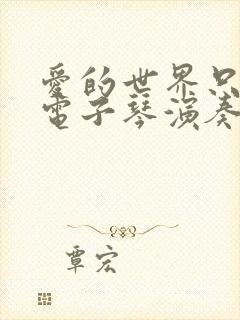 愛的世界只
電子琴演奏
覃宏